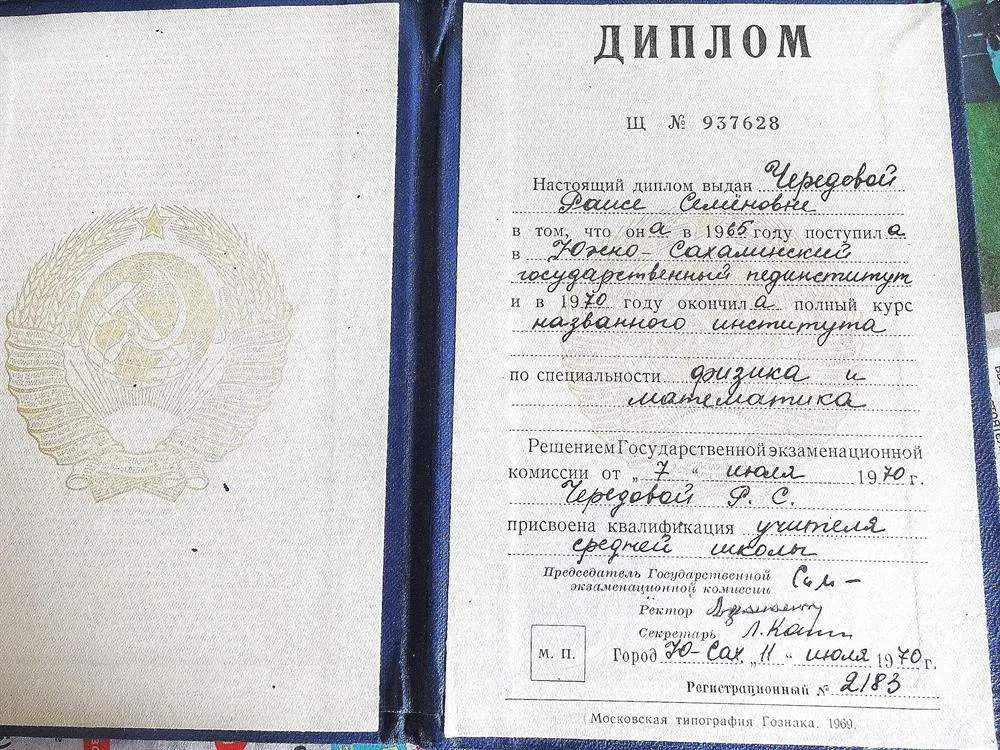 ДИПЛОМ
Щ № 937628
Настоящий диплом выдан Чередовой
Раисе Семёновне
в том, что она в 1965 году поступила
в Южно-Сахалинский
государственный пединститут
и в 1970 году окончила полный курс
названного института
по специальности физика и
математика
Решением Государственной экзаменационной
комиссии от „7" июля 1970 г.
Чередовой Р. С.
присвоена квалификация учителя
средней школы
Председатель Государственной
экзаменационной комиссии
Ректор
Секретарь
М. П.
Город Ю-Сах. „11" июля 1970 г.
Регистрационный № 2183
Московская типография Гознака. 1969.